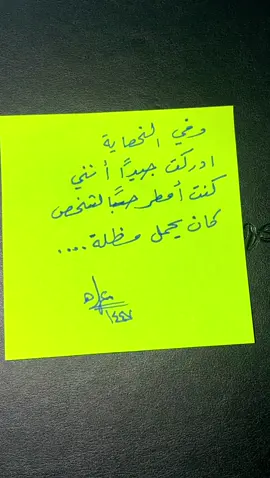 وفي النهاية
ادركت جيدًا أنني
كنت أمطر حبًا لشخص
كان يحمل مظلة....
١٤٤٧